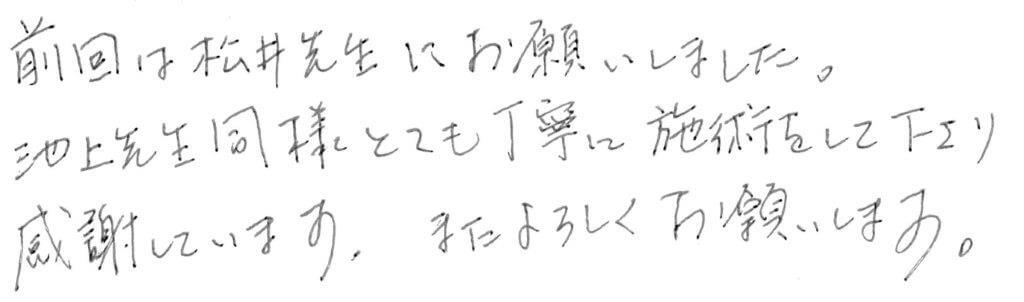 前回は松井先生にお願いしました。
池上先生同様とても丁寧に施術をして下さり
感謝しています。またよろしくお願いします。